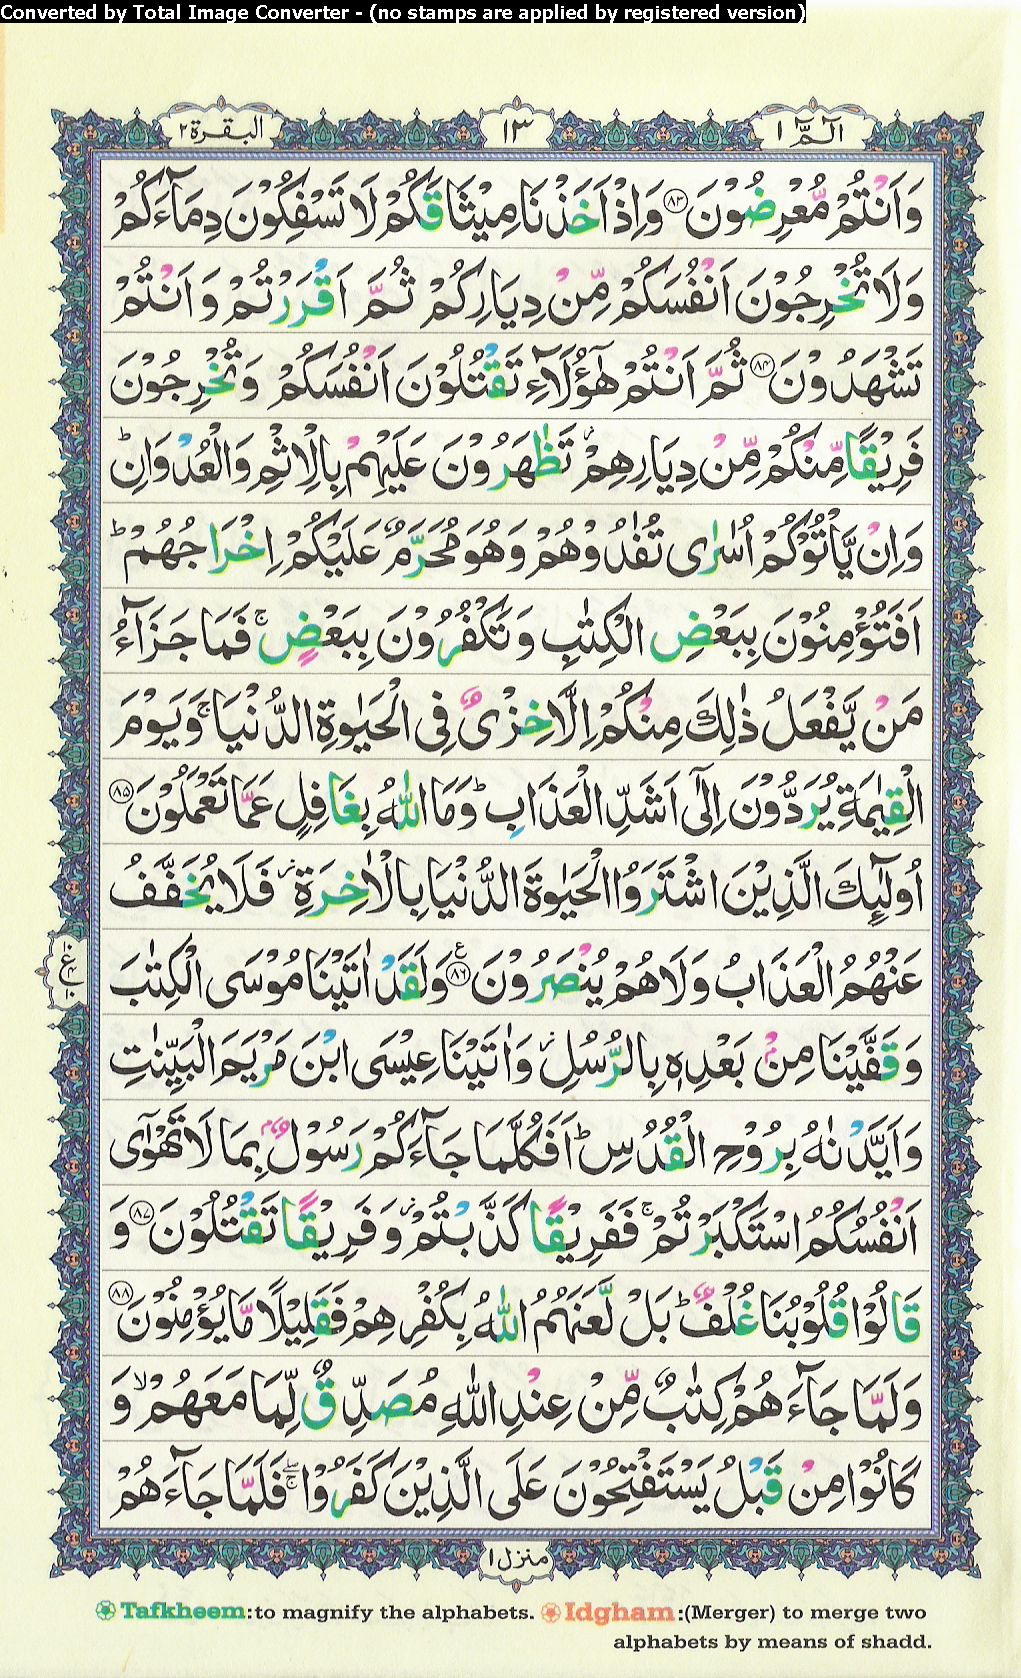 Converted by Total Image Converter - (no stamps are applied by registered version)
الٓمّٓ ١ ١٣ البقرة ٢
وَاَنْتُمْ مُّعْرِضُوْنَ ﴿٨٣﴾ وَاِذْ اَخَذْنَا مِيْثَاقَكُمْ لَا تَسْفِكُوْنَ دِمَآءَكُمْ
وَلَا تُخْرِجُوْنَ اَنْفُسَكُمْ مِّنْ دِيَارِكُمْ ثُمَّ اَقْرَرْتُمْ وَاَنْتُمْ
تَشْهَدُوْنَ ﴿٨٤﴾ ثُمَّ اَنْتُمْ هٰٓؤُلَآءِ تَقْتُلُوْنَ اَنْفُسَكُمْ وَتُخْرِجُوْنَ
فَرِيْقًا مِّنْكُمْ مِّنْ دِيَارِهِمْ تَظٰهَرُوْنَ عَلَيْهِمْ بِالْاِثْمِ وَالْعُدْوَانِ ؕ
وَاِنْ يَّاْتُوْكُمْ اُسٰرٰى تُفٰدُوْهُمْ وَهُوَ مُحَرَّمٌ عَلَيْكُمْ اِخْرَاجُهُمْ ؕ
اَفَتُؤْمِنُوْنَ بِبَعْضِ الْكِتٰبِ وَتَكْفُرُوْنَ بِبَعْضٍ ۚ فَمَا جَزَآءُ
مَنْ يَّفْعَلُ ذٰلِكَ مِنْكُمْ اِلَّا خِزْىٌ فِى الْحَيٰوةِ الدُّنْيَا ۚ وَيَوْمَ
الْقِيٰمَةِ يُرَدُّوْنَ اِلٰٓى اَشَدِّ الْعَذَابِ ؕ وَمَا اللّٰهُ بِغَافِلٍ عَمَّا تَعْمَلُوْنَ ﴿٨٥﴾
اُولٰٓئِكَ الَّذِيْنَ اشْتَرَوُا الْحَيٰوةَ الدُّنْيَا بِالْاٰخِرَةِ ؗ فَلَا يُخَفَّفُ
عَنْهُمُ الْعَذَابُ وَلَا هُمْ يُنْصَرُوْنَ ﴿٨٦﴾ ع وَلَقَدْ اٰتَيْنَا مُوْسَى الْكِتٰبَ
وَقَفَّيْنَا مِنْۢ بَعْدِهٖ بِالرُّسُلِ ؗ وَاٰتَيْنَا عِيْسَى ابْنَ مَرْيَمَ الْبَيِّنٰتِ
وَاَيَّدْنٰهُ بِرُوْحِ الْقُدُسِ ؕ اَفَكُلَّمَا جَآءَكُمْ رَسُوْلٌۢ بِمَا لَا تَهْوٰٓى
اَنْفُسُكُمُ اسْتَكْبَرْتُمْ ۚ فَفَرِيْقًا كَذَّبْتُمْ ؗ وَفَرِيْقًا تَقْتُلُوْنَ ﴿٨٧﴾ وَ
قَالُوْا قُلُوْبُنَا غُلْفٌ ؕ بَلْ لَّعَنَهُمُ اللّٰهُ بِكُفْرِهِمْ فَقَلِيْلًا مَّا يُؤْمِنُوْنَ ﴿٨٨﴾
وَلَمَّا جَآءَهُمْ كِتٰبٌ مِّنْ عِنْدِ اللّٰهِ مُصَدِّقٌ لِّمَا مَعَهُمْ ۙ وَ
كَانُوْا مِنْ قَبْلُ يَسْتَفْتِحُوْنَ عَلَى الَّذِيْنَ كَفَرُوْا ۖۚ فَلَمَّا جَآءَهُمْ
منزل ١
Tafkheem:to magnify the alphabets. Idgham:(Merger) to merge two
alphabets by means of shadd.